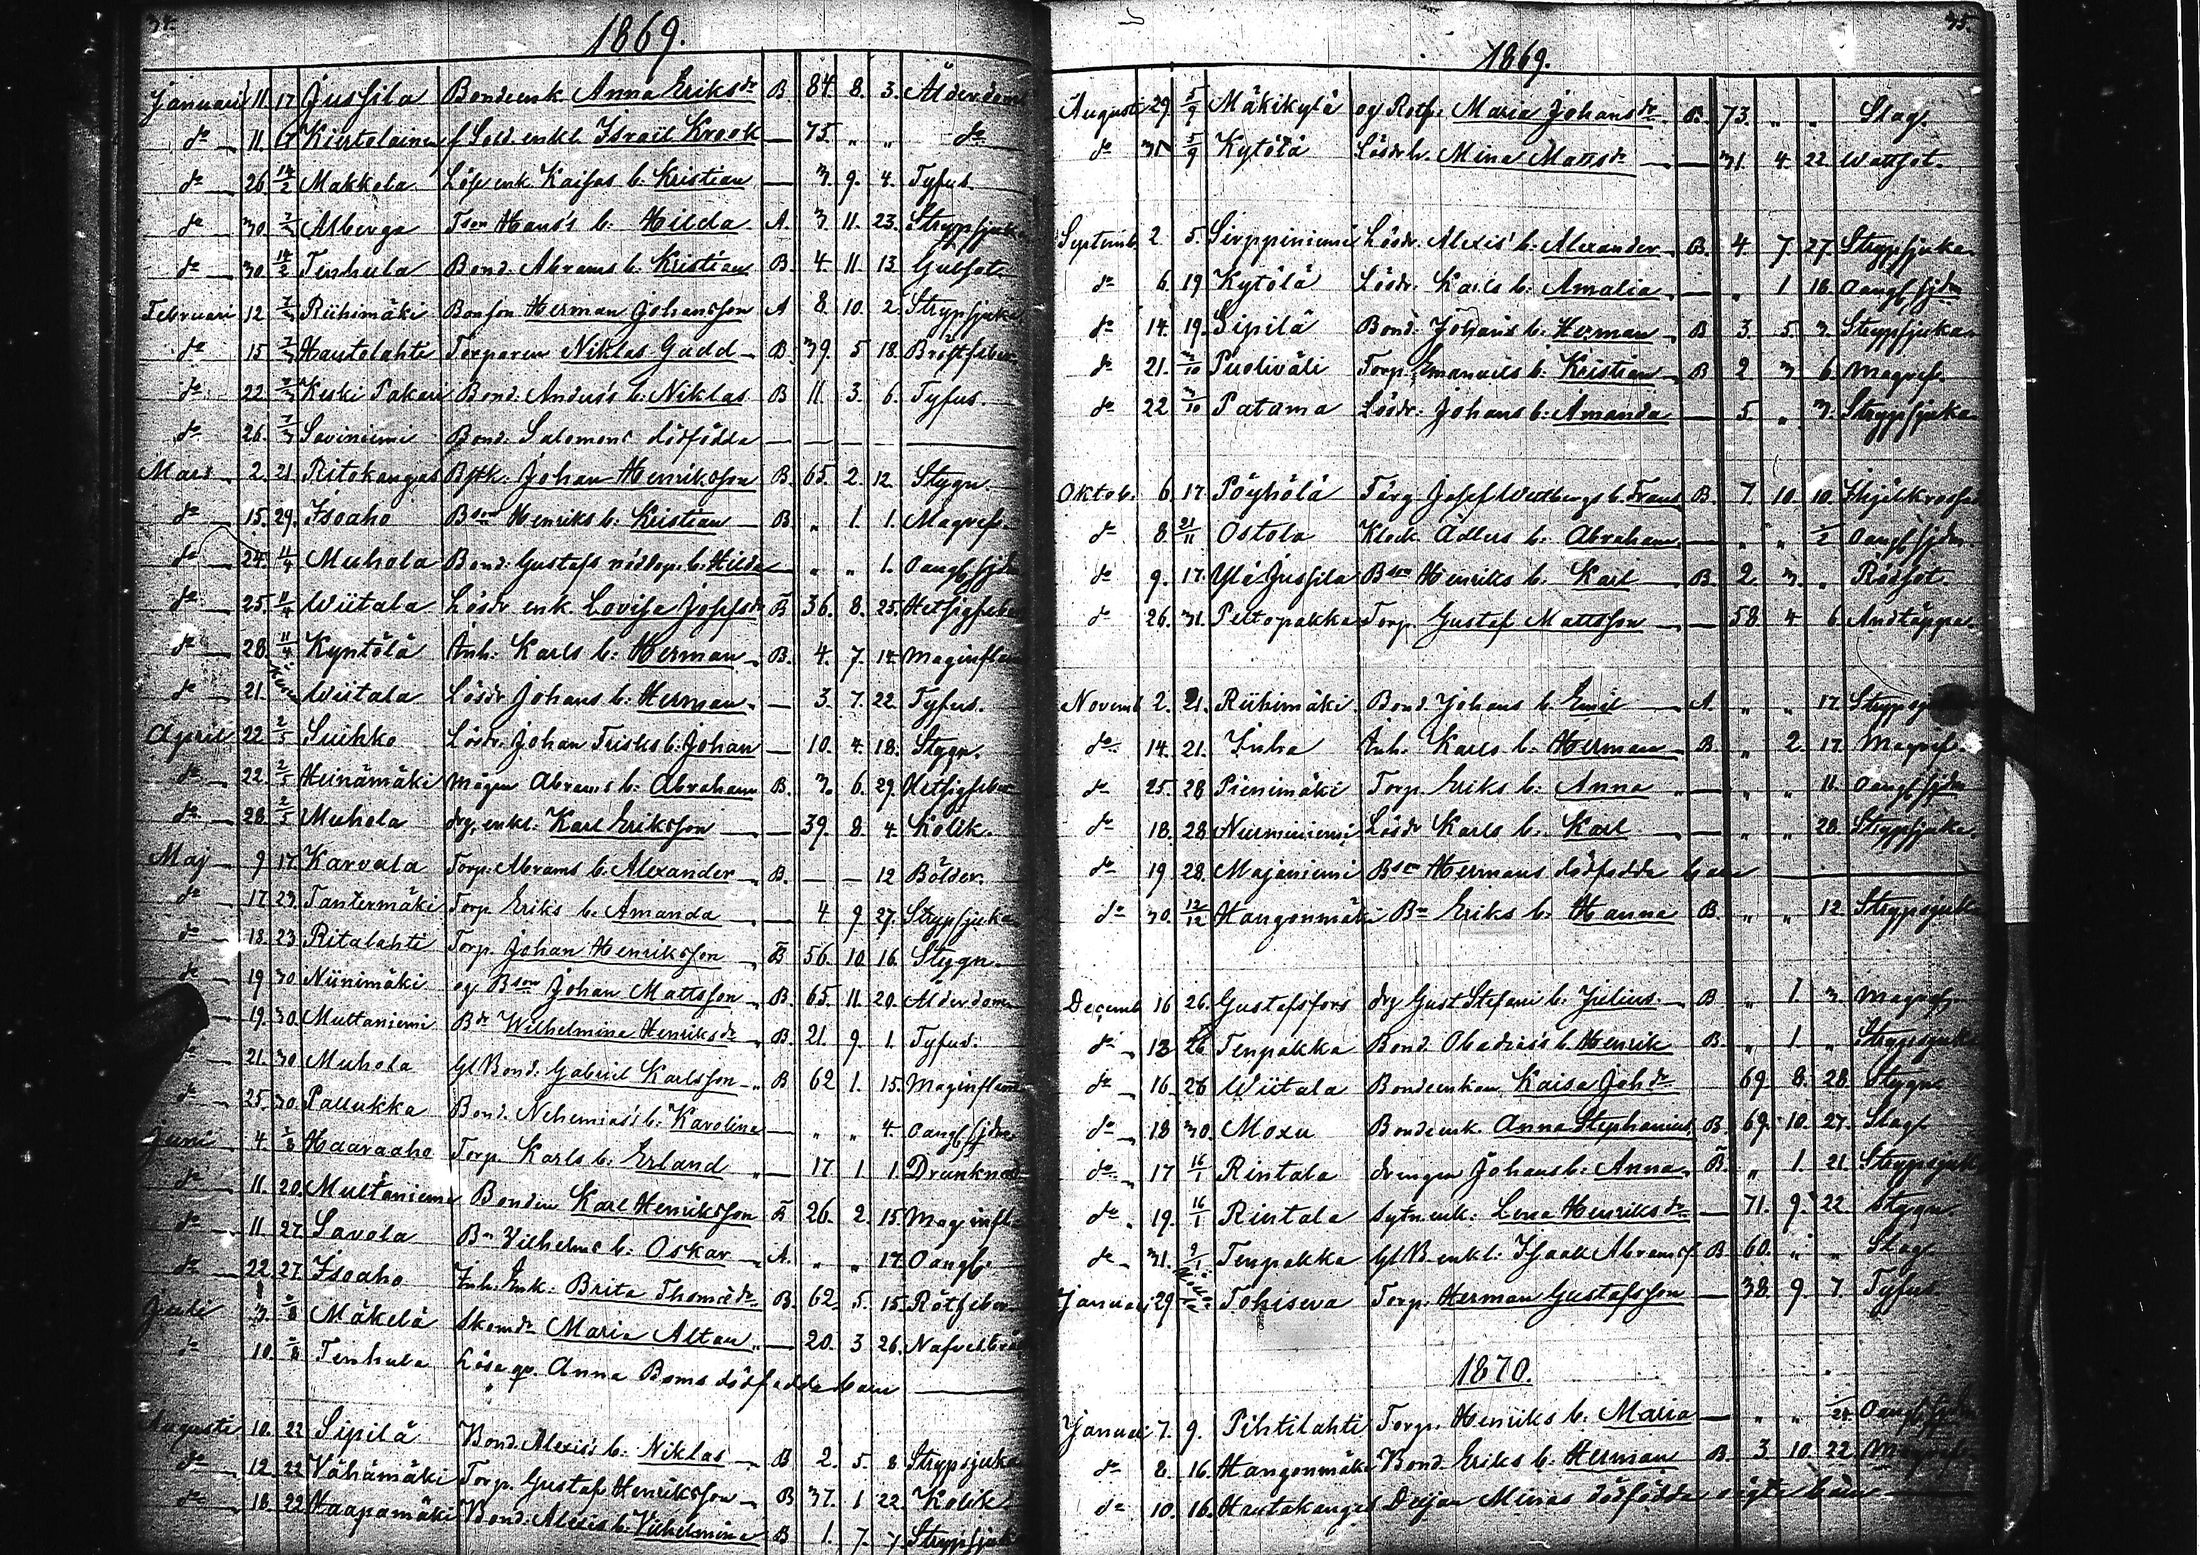 34.
1869.
Januari 11. 17 Jussila Bondeenk. Anna Eriksdr B. 84. 8. 3. Ålderdom
dr 11. 17 Kiertolainen f. Sold. enkl. Israil Krook — 75. „ „ dr
dr 26 14/2 Makkola Lös. enk. Kaisas b. Kristian — 3. 9. 4. Tyfus.
dr 30 7/2 Alberga Tson Hans's b. Hilda A. 3 11. 23. Strypsjuka
dr 30. 14/2 Tenhula Bond. Abrams b. Kristian B. 4. 11. 13. Gulsot
Februari 12 7/3 Riihimäki Bonson Herman Johansson A 8. 10. 2. Strypsjuka
dr 15 7/3 Hautolahti Torparen Niklas Gadd B. 39. 5 18. Bröstfeber
dr 22 7/3 Keski Pakari Bond. Anders's b. Niklas B 11. 3. 6. Tyfus.
dr 26. 7/3 Saviniemi Bond. Salomons dödfödda — — —
Mars 2. 21 Ritokangas Johan Henriksson B. 65. 2. 12. Stygn.
dr 15. 29. Isoaho Bson Henriks b. Kristian B. „ 1. 1. Magref.
dr 24. 4/4 Muhola Bond. Gustafs nöddop. b. Hilda — „ „ 1. Oangf. sjdm
dr 25. 11/4 Wiitala Lösdr enk. Lovisa Josefsdr B 36. 8. 25. Hetsigfeber
dr 28. 11/4 Kyntölä Inh. Karls b. Herman B. 4. 7. 14. Maginflam
dr 21. Wiitala Lösdr Johans b. Herman — 3. 7. 22. Tyfus.
April 22 2/5 Suihko Lösdr. Johan Frisks b. Johan — 10. 4. 18. Stygn.
dr 22. 2/5 Heinämäki Mågen Abrams b. Abraham B. 3. 6. 29. Hetsigfeber
dr 28. 2/5 Muhola drg. enkl. Karl Eriksson — 39. 8. 4. Kolik.
Maj 9 17. Karvala Torp. Abrams b. Alexander B. — — 12 Bölder.
dr 17. 23. Tantermäki Torp Eriks b. Amanda — 4 9 27. Strypsjuka
dr 18. 23 Ritalahti Torp. Johan Henriksson B 56. 10. 16. Stygn.
dr 19 30 Niinimäki og Bson Johan Mattsson B. 65. 11. 20. Ålderdom
19. 30. Multaniemi Bdr Wilhelmina Henriksdr B. 21. 9. 1. Tyfus.
21. 30. Muhola Gl Bond. Gabriel Karlsson B 62 1. 15. Maginflam
dr 25. 30. Pallukka Bond. Nehemias's b. Karolina — „ „ 4. Oangf sjdm
Juni 4. Haaraaho Torp. Karls b. Erland — 17. 1 1. Drunknad
dr 11. 20. Multaniemi Bonden Karl Henriksson B 26. 2. 15. Maginfl
dr 11. 27. Savola Bn Vilhelms b. Oskar A. „ „ 17. Oangf.
dr 22. 27. Isoaho Inh. Enk. Brita Thomædr B. 62. 5. 15. Rötfeber
Juli 3. Mäkelä Skomdr Maria Altan — 20. 3 26. Nafvelbrå
dr 10. Tenhula Lösa qv. Anna Boms dödfödda barn
Augusti 10. 22 Sipilä Bond. Alexis's b. Niklas B 2. 5. 8 Strypsjuka
dr 12. 22 Vähämäki Torp. Gustaf Henriksson B 37. 1 22. Kolik
dr 18. 22 Haapamäki Bond. Alexis b. Vilhelmina B 1. 7. 7 Strypsjuk
35.
1869.
Augusti 29. 5/9 Mäkikylä og Rotf. Maria Johansdr B. 73. „ „ Slag.
dr 31 5/9 Kytölä Lösdr. Mina Mattsdr — 31. 4. 22. Wattsot.
Septemb. 2. 5. Sirppiniemi Lösdr. Alexis' b. Alexander B. 4. 7. 27. Strypsjuka
dr 6. 19 Kytölä Lösdr. Karls b. Amalia — „ 1 18. Oangf sjdm
dr 14. 19. Sipilä Bond. Johans b. Herman B 3. 5. 3. Strypsjuka
dr 21. 3/10 Puoliväli Torp. Emanuels b. Kristian B 2 3 6. Magref.
dr 22 3/10 Patama Lösdr. Johans b. Amanda — 5 „ 3. Strypsjuka
Oktob. 6. 17. Pöyhölä Färg. Josef Westbergs b. Frans B. 7. 10. 10. Ihjälkrossad
dr 8. 21/11 Ostola Klock Adlers b. Abraham — „ „ 1/2 Oangf sjdm.
dr 9. 17. Ylä Jussila Bson Henriks b. Karl B. 2. 3. „ Rödsot.
dr 26. 31. Peltopakka Torp. Gustaf Mattsson — 58. 4 6. Andtäppa
Novemb 2. 21. Riihimäki Bond. Johans b. Emil A „ „ 17. Strypsj
dr 14. 21. Inha Inh. Karls b. Herman B „ 2. 17. Magref.
dr 25. 28 Pienimäki Torp. Eriks b. Anna — „ „ 11. Oangf sjdm
dr 18. 28. Nurminiemi Lösdr Karls b. Karl — „ „ 28 Strypsjuka.
dr 19 28. Majaniemi Bsn Hermans dödfödda barn
dr 30. 12/12 Hangonmäki Bn Eriks b. Hanna B „ „ 12 Strypsjuk
Decemb 16 26. Gustafsfors drg Gust Stefani b. Julius B „ 1. 3. Magref
dr 13 26 Tenpakka Bond. Obadias's b. Henrik B. „ 1. „ Strypsjuk
dr 16. 26 Wiitala Bondeenkan Kaisa Johdr 69. 8. 28. Stygn
dr 18 30. Moxu Bondeenk. Anna Stephanius B. 69. 10. 27. Slag.
dr 17 16/1 Rintala drengen Johans b. Anna B. „ 1. 21. Strypsjuk
dr 19. 16/1 Rintala Sytn.enk. Lena Henriksdr — 71. 9. 22. Stygn
dr 31. 9/1 Tenpakka Gl B. enkl. Isaak Abramsf. B. 60. „ „ Slag.
Januari 29. Tohiseva Torp. Herman Gustafsson — 38. 9. 7. Tyfus.
1870.
Januari 7. 9. Pihtilahti Torp. Henriks b. Maria — „ „ Oangf
dr 8. 16. Hangonmäki Bond. Eriks b. Herman B. 3 10. 22
dr 10. 16. Hautakangas Minas dödfödda oägta barn